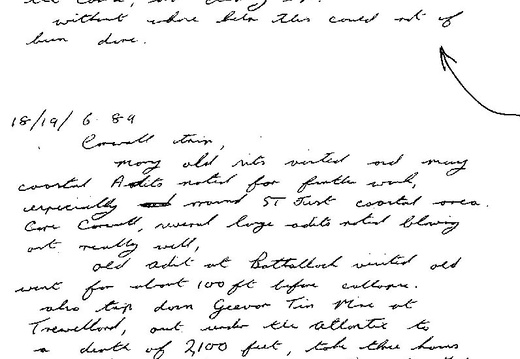 without whose help this could not of
been done.
18/19/6 89
Cornwall trip,
many old sites visited and many
coastal Adits noted for further work,
especially around ST Just coastal area.
Cape Cornwall, several large adits noted blowing
out really well,
old adit at Bottallack visited old
went for about 100 ft before collapse.
also trip down Geevor Tin Mine at
Trewellard, out under the Atlantic to
a depth of 2,100 feet, took three hours